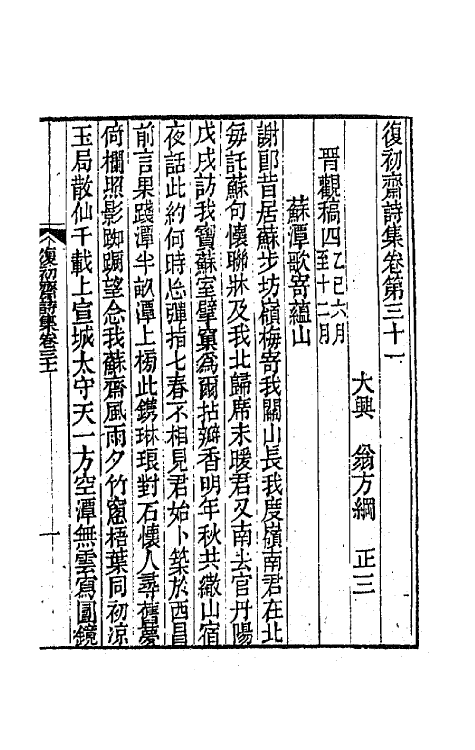 復初齋詩集卷第三十一
大興 翁方綱 正三
晋觀稿四乙巳六月至十二月
蘇潭歌寄蘊山
謝郎昔居蘇步坊嶺梅寄我關山長我度嶺南君在北
每託蘇句懷聯牀及我北歸席未暖君又南去官丹陽
戊戌訪我寶蘇室擘窠為爾拈瓣香明年秋共繖山宿
夜話此約何時忘彈指七春不相見君始卜築於西昌
前言果踐潭半畝潭上榜此鐫琳琅對石懷人尋舊夢
倚欄照影踟躕望念我蘇齋風雨夕竹窗梧葉同初涼
玉局散仙千載上宣城太守天一方空潭無雲寫圓鏡
復初齋詩集卷三十一
一